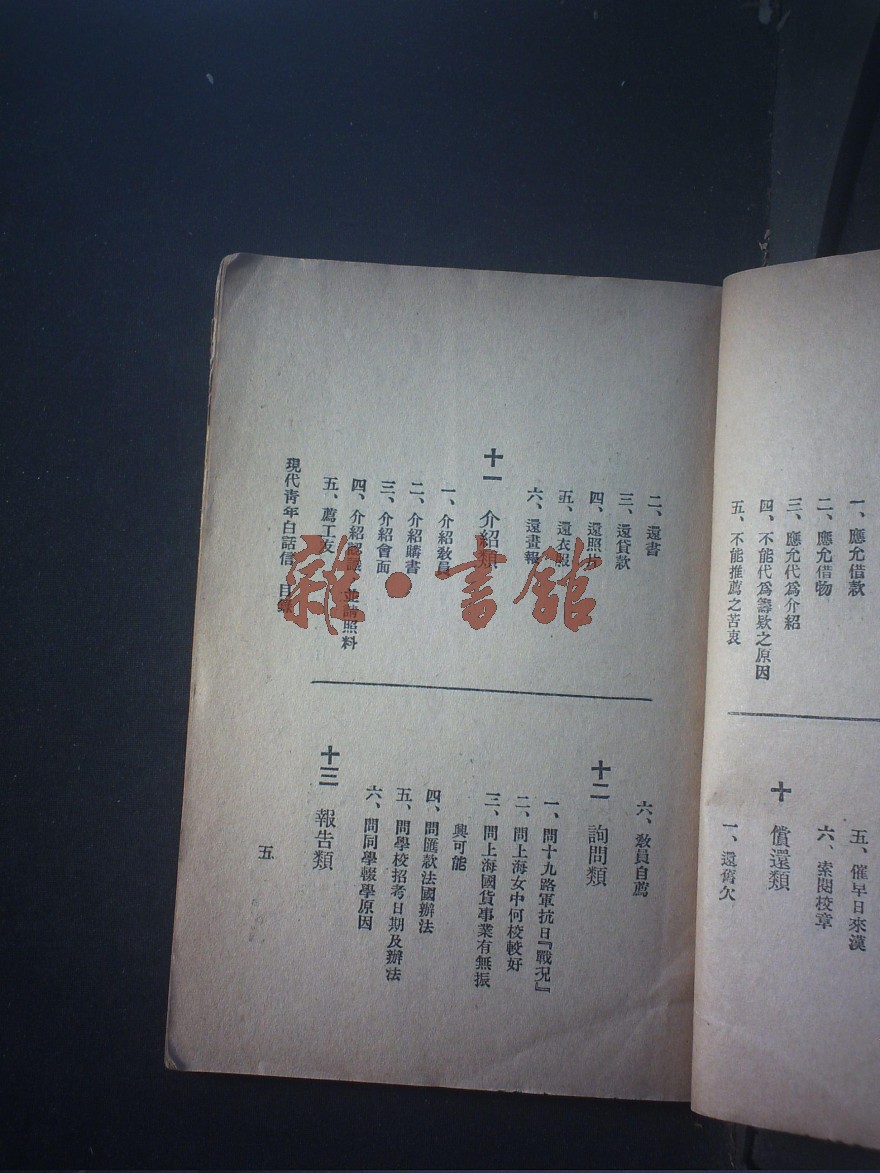 一、應允借款
二、應允借物
三、應允代爲介紹
四、不能代爲籌欵之原因
五、不能推薦之苦衷
五、催早日來漢
六、索閱校章
十 償還類
一、還舊欠
二、還書
三、還貸款
四、還照
五、還衣服
六、還畫報
十一 介紹類
一、介紹敎員
二、介紹購書
三、介紹會面
四、介紹 並 照料
五、薦工友
六、敎員自薦
十二 詢問類
一、問十九路軍抗日『戰況』
二、問上海女中何校較好
三、問上海國貨事業有無振
興可能
四、問匯款法國辦法
五、問學校招考日期及辦法
六、問同學輟學原因
十三 報告類
現代青年白話信 目錄
五
雜·書館